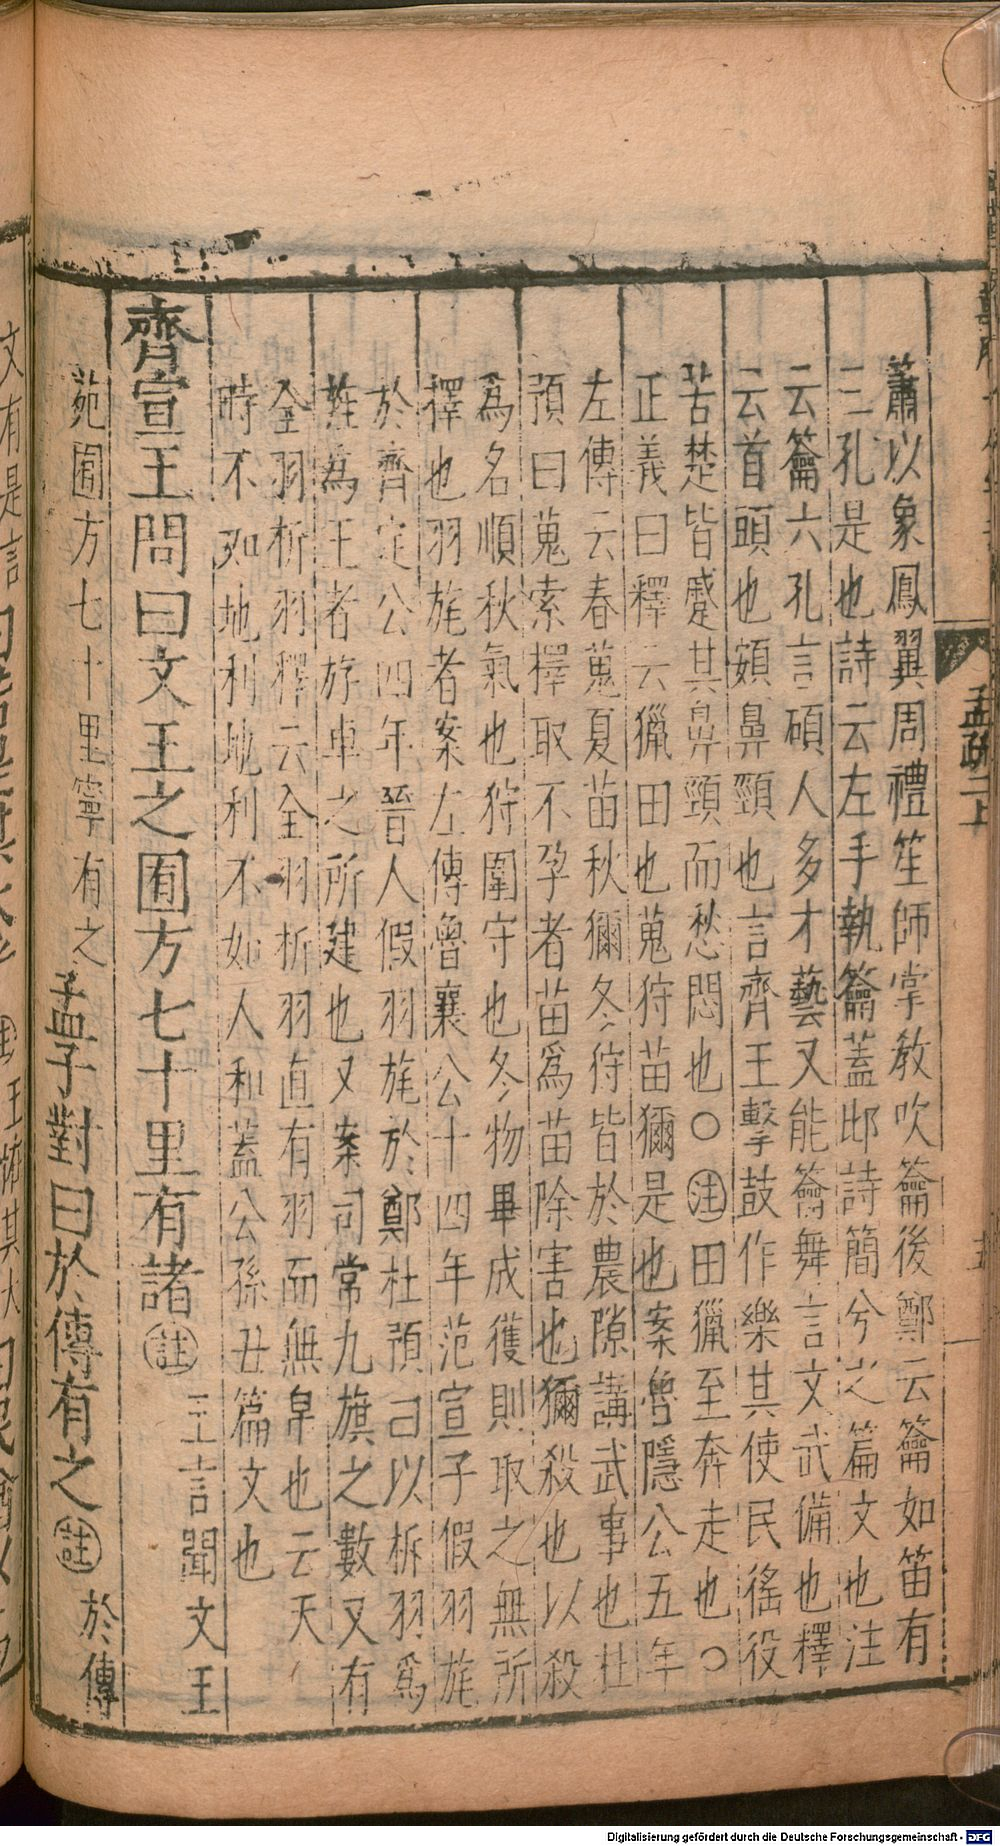 簫以象鳳翼周禮笙師掌教吹籥後鄭云籥如笛有
三孔是也詩云左手執籥蓋邶詩簡兮之篇文也注
云籥六孔言碩人多才藝又能籥舞言文武備也釋
云首頭也頞鼻頸也言齊王擊鼓作樂其使民徭役
苦楚皆蹙其鼻頸而愁悶也○注田獵至奔走也○
正義曰釋云獵田也蒐狩苗獮是也案魯隱公五年
左傳云春蒐夏苗秋獮冬狩皆於農隙講武事也杜
預曰蒐索擇取不孕者苗爲苗除害也獮殺也以殺
爲名順秋氣也狩圍守也冬物畢成獲則取之無所
擇也羽旄者案左傳魯襄公十四年范宣子假羽旄
於齊定公四年晉人假羽旄於鄭杜預己以析羽爲
旌爲王者斿車之所建也又案司常九旗之數又有
全羽析羽釋云全羽析羽直有羽而無帛也云天
時不如地利地利不如人和蓋公孫丑篇文也
齊宣王問曰文王之囿方七十里有諸註王言聞文王
苑囿方七十里寧有之孟子對曰於傳有之註於傳
孟疏二上
文有是言
Digitalisierung gefördert durch die Deutsche Forschungsgemeinschaft - DFG